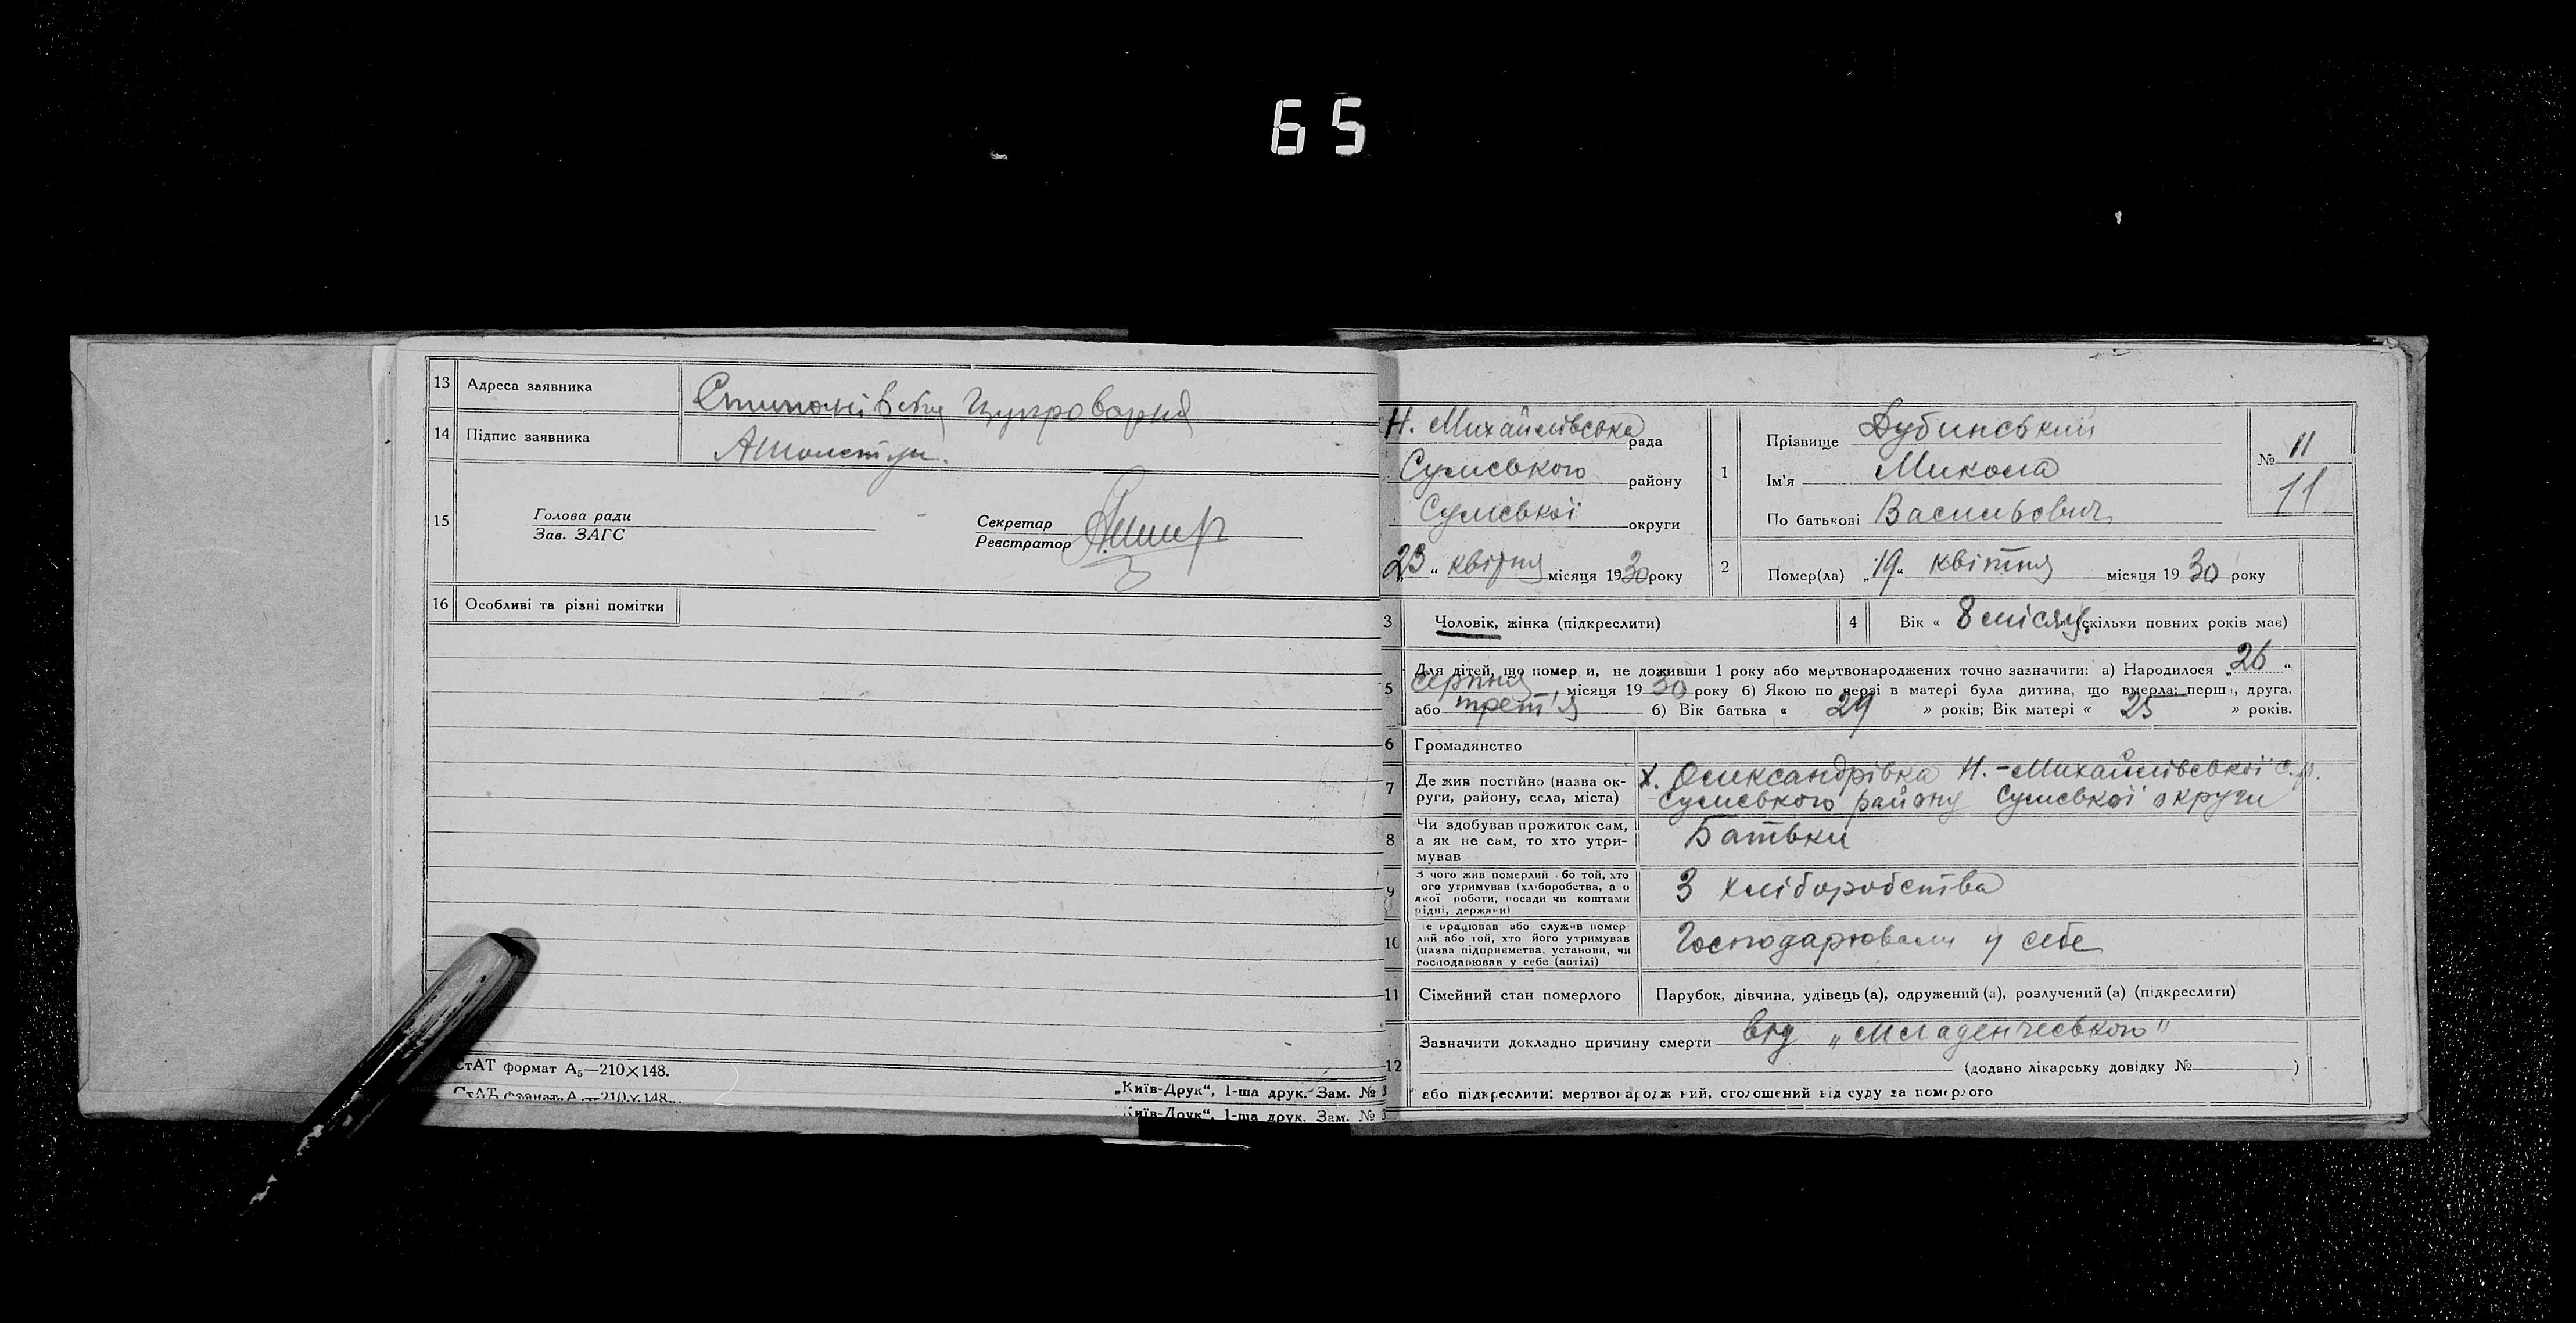 65
13 Адреса заявника Степанівська Цукроварня
14 Підпис заявника
15 Голова ради
Зав. ЗАГС
Секретар
Реєстратор
16 Особливі та різні помітки
СтАТ формат А5—210×148.
„Київ-Друк“, 1-ша друк. Зам. № 3
СтАТ формат А5—210×148.
„Київ-Друк“, 1-ша друк. Зам. № 3
Н. Михайлівська рада
Сумського району
Сумської округи
„23“ квітня місяця 1930 року
1 Прізвище Дубинський
Ім'я Микола
По батькові Васильович
№ 11
11
2 Помер(ла) „19“ квітня місяця 1930 року
3 Чоловік, жінка (підкреслити)
4 Вік « 8 місяц. » (скільки повних років має)
5 Для дітей, що померли, не доживши 1 року або мертвонароджених точно зазначити: а) Народилося „26“
серпня місяця 1930 року б) Якою по черзі в матері була дитина, що вмерла: перша, друга,
або трет'я б) Вік батька « 29 » років; Вік матері « 25 » років.
6 Громадянство
7 Де жив постійно (назва ок-
руги, району, села, міста)
х. Олександрівка Н.-Михайлівської с.р.
Сумського району Сумської округи
8 Чи здобував прожиток сам,
а як не сам, то хто утри-
мував
Батьки
9 З чого жив померлий або той, хто
його утримував (хліборобства, а о
якої роботи, посади чи коштами
рідні, держави)
З хліборобства
10 Де працював або служив помер
лий або той, хто його утримував
(назва підприємства, установи, чи
господарював у себе (артілі)
Господарювали у себе
11 Сімейний стан померлого Парубок, дівчина, удівець (а), одружений (а), розлучений (а) (підкреслити)
12 Зазначити докладно причину смерти від „младенческого"
(додано лікарську довідку № )
або підкреслити: мертвонароджений, оголошений від суду за померлого